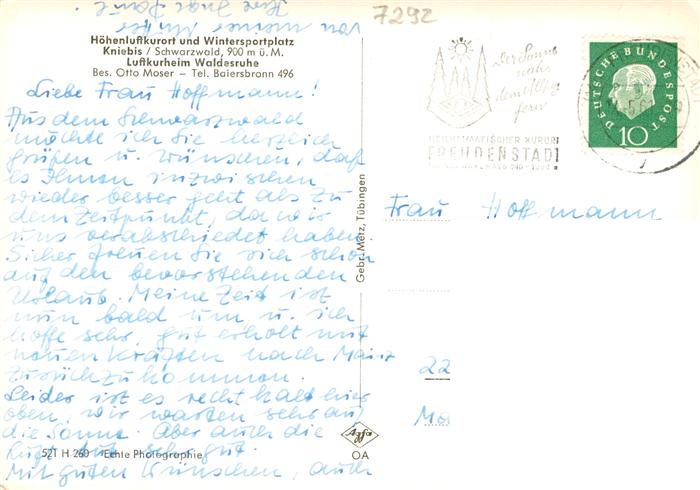 7292
Höhenluftkurort und Wintersportplatz
Kniebis / Schwarzwald, 900 m ü. M.
Luftkurheim Waldesruhe
Bes. Otto Moser – Tel. Baiersbronn 496
Liebe Frau Hoffmann!
Aus dem Schwarzwald
möchte ich Sie herzlich
grüßen u. wünschen, daß
es Ihnen inzwischen
wieder besser geht als zu
dem Zeitpunkt, da wir
uns verabschiedet haben.
Sicher freuen Sie sich schon
auf den bevorstehenden
Urlaub. Meine Zeit ist
nun bald um u. ich
hoffe sehr, gut erholt mit
neuen Kräften nach Mainz
zurückzukommen.
Leider ist es recht kalt hier
oben, wir warten sehr auf
die Sonne. Aber auch die
Luft tut sehr gut.
Mit guten Wünschen, auch
von meiner Mutter
Ihre Inge
52T H 260 Echte Photographie
Gebr. Metz, Tübingen
Agfa
OA
Der Sonne
nah
dem Alltag
fern
HEILKLIMATISCHER KURORT
FREUDENSTADT
DEUTSCHE BUNDESPOST
10
Frau Hoffmann
22